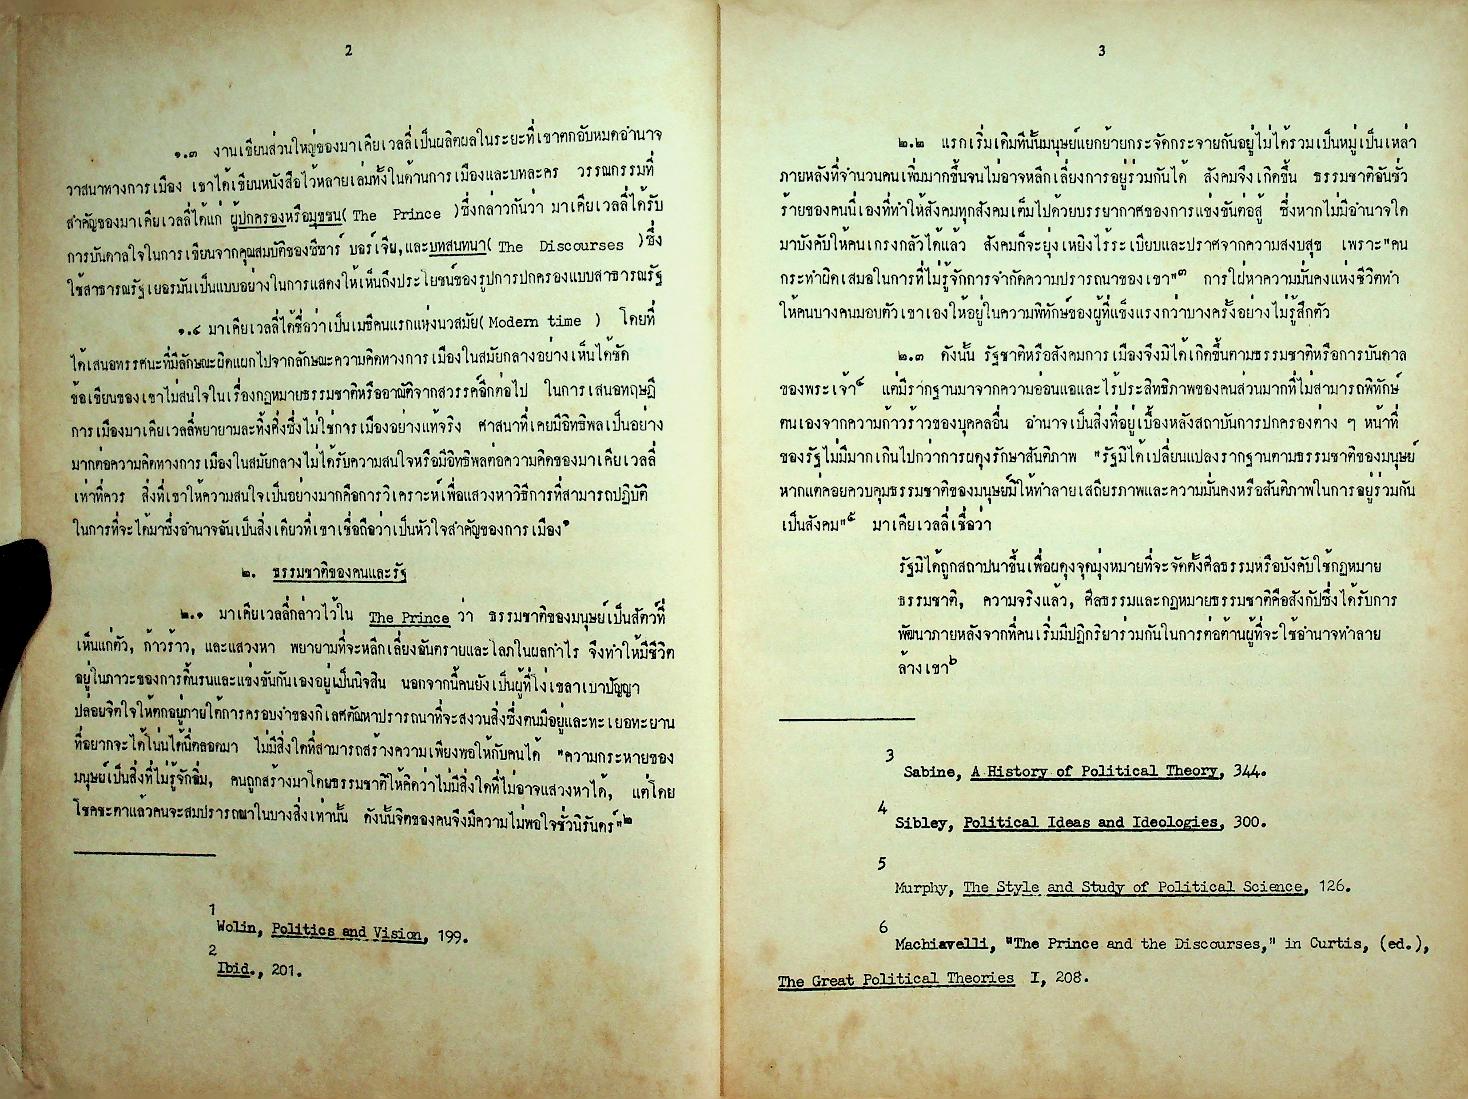 2
๑.๓ งานเขียนส่วนใหญ่ของมาเคียเวลลี่เป็นผลิตผลในระยะที่เขาตกอับหมดอำนาจ
วาสนาทางการเมือง เขาได้เขียนหนังสือไว้หลายเล่มทั้งในด้านการเมืองและบทละคร วรรณกรรมที่
สำคัญของมาเคียเวลลี่ได้แก่ ผู้ปกครองหรือมุขชน( The Prince )ซึ่งกล่าวกันว่า มาเคียเวลลี่ได้รับ
การบันดาลใจในการเขียนจากคุณสมบัติของซีซาร์ บอร์เจีย,และบทสนทนา( The Discourses )ซึ่ง
ใช้สาธารณรัฐเยอรมันเป็นแบบอย่างในการแสดงให้เห็นถึงประโยชน์ของรูปการปกครองแบบสาธารณรัฐ
๑.๔ มาเคียเวลลี่ได้ชื่อว่าเป็นเมธีคนแรกแห่งนวสมัย( Modern time ) โดยที่
ได้เสนอทรรศนะที่มีลักษณะผิดแผกไปจากลักษณะความคิดทางการเมืองในสมัยกลางอย่างเห็นได้ชัด
ข้อเขียนของเขาไม่สนใจในเรื่องกฎหมายธรรมชาติหรืออาณัติจากสวรรค์อีกต่อไป ในการเสนอทฤษฎี
การเมืองมาเคียเวลลี่พยายามละทิ้งสิ่งซึ่งไม่ใช่การเมืองอย่างแท้จริง ศาสนาที่เคยมีอิทธิพลเป็นอย่าง
มากต่อความคิดทางการเมืองในสมัยกลางไม่ได้รับความสนใจหรือมีอิทธิพลต่อความคิดของมาเคียเวลลี่
เท่าที่ควร สิ่งที่เขาให้ความสนใจเป็นอย่างมากคือการวิเคราะห์เพื่อแสวงหาวิธีการที่สามารถปฏิบัติ
ในการที่จะได้มาซึ่งอำนาจอันเป็นสิ่งเดียวที่เขาเชื่อถือว่าเป็นหัวใจสำคัญของการเมือง๑
๒. ธรรมชาติของคนและรัฐ
๒.๑ มาเคียเวลลี่กล่าวไว้ใน The Prince ว่า ธรรมชาติของมนุษย์เป็นสัตว์ที่
เห็นแก่ตัว, ก้าวร้าว, และแสวงหา พยายามที่จะหลีกเลี่ยงอันตรายและโลภในผลกำไร จึงทำให้มีชีวิต
อยู่ในภาวะของการดิ้นรนและแข่งขันกันเองอยู่เป็นนิจสิน นอกจากนี้คนยังเป็นผู้ที่โง่เขลาเบาปัญญา
ปล่อยจิตใจให้ตกอยู่ภายใต้การครอบงำของกิเลศตัณหาปรารถนาที่จะสงวนสิ่งซึ่งตนมีอยู่และทะเยอทะยาน
ที่อยากจะได้โน่นได้นี่ตลอดมา ไม่มีสิ่งใดที่สามารถสร้างความเพียงพอให้กับคนได้ "ความกระหายของ
มนุษย์เป็นสิ่งที่ไม่รู้จักอิ่ม, คนถูกสร้างมาโดยธรรมชาติให้คิดว่าไม่มีสิ่งใดที่ไม่อาจแสวงหาได้, แต่โดย
โชคชะตาแล้วคนจะสมปรารถนาในบางสิ่งเท่านั้น ดังนั้นจิตของคนจึงมีความไม่พอใจชั่วนิรันดร์"๒
1
Wolin, Politics and Vision, 199.
2
Ibid., 201.
3
๒.๒ แรกเริ่มเดิมทีนั้นมนุษย์แยกย้ายกระจัดกระจายกันอยู่ไม่ได้รวมเป็นหมู่เป็นเหล่า
ภายหลังที่จำนวนคนเพิ่มมากขึ้นจนไม่อาจหลีกเลี่ยงการอยู่ร่วมกันได้ สังคมจึงเกิดขึ้น ธรรมชาติอันชั่ว
ร้ายของคนนี่เองที่ทำให้สังคมทุกสังคมเต็มไปด้วยบรรยากาศของการแข่งขันต่อสู้ ซึ่งหากไม่มีอำนาจใด
มาบังคับให้คนเกรงกลัวได้แล้ว สังคมก็จะยุ่งเหยิงไร้ระเบียบและปราศจากความสงบสุข เพราะ"คน
กระทำผิดเสมอในการที่ไม่รู้จักการจำกัดความปรารถนาของเขา"๓ การใฝ่หาความมั่นคงแห่งชีวิตทำ
ให้คนบางคนมอบตัวเขาเองให้อยู่ในความพิทักษ์ของผู้ที่แข็งแรงกว่าบางครั้งอย่างไม่รู้สึกตัว
๒.๓ ดังนั้น รัฐชาติหรือสังคมการเมืองจึงมิได้เกิดขึ้นตามธรรมชาติหรือการบันดาล
ของพระเจ้า๔ แต่มีรากฐานมาจากความอ่อนแอและไร้ประสิทธิภาพของคนส่วนมากที่ไม่สามารถพิทักษ์
ตนเองจากความก้าวร้าวของบุคคลอื่น อำนาจเป็นสิ่งที่อยู่เบื้องหลังสถาบันการปกครองต่าง ๆ หน้าที่
ของรัฐไม่มีมากเกินไปกว่าการผดุงรักษาสันติภาพ "รัฐมิได้เปลี่ยนแปลงรากฐานตามธรรมชาติของมนุษย์
หากแต่คอยควบคุมธรรมชาติของมนุษย์มิให้ทำลายเสถียรภาพและความมั่นคงหรือสันติภาพในการอยู่ร่วมกัน
เป็นสังคม"๕ มาเคียเวลลี่เชื่อว่า
รัฐมิได้ถูกสถาปนาขึ้นเพื่อผดุงจุดมุ่งหมายที่จะจัดตั้งศีลธรรมหรือบังคับใช้กฎหมาย
ธรรมชาติ, ความจริงแล้ว, ศีลธรรมและกฎหมายธรรมชาติคือสังกัปซึ่งได้รับการ
พัฒนาภายหลังจากที่คนเริ่มมีปฏิกริยาร่วมกันในการต่อต้านผู้ที่จะใช้อำนาจทำลาย
ล้างเขา๖
3
Sabine, A History of Political Theory, 344.
4
Sibley, Political Ideas and Ideologies, 300.
5
Murphy, The Style and Study of Political Science, 126.
6
Machiavelli, "The Prince and the Discourses," in Curtis, (ed.),
The Great Political Theories I, 208.